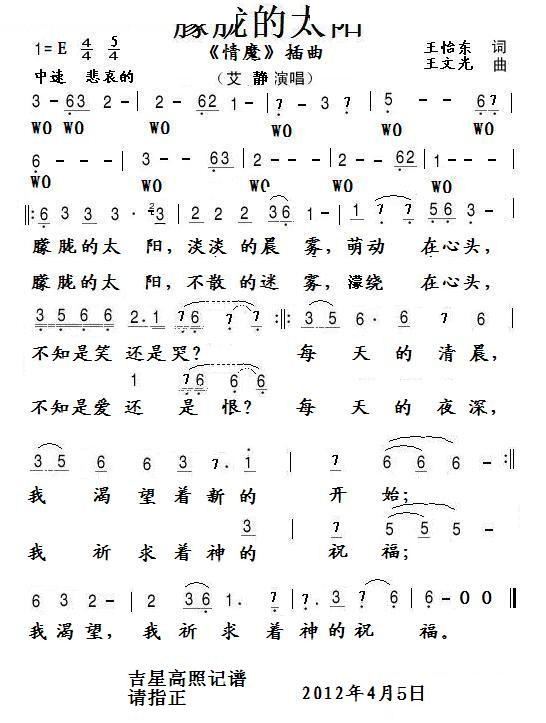 朦胧的太阳
1=E 4/4 5/4 《情魔》插曲 王怡东 词
王文光 曲
中速 悲哀的 (艾 静演唱)
3 - 63 2 - | 2 - - 62 | 1 - - 7 | 5 - - 67 |
WO WO WO WO
6 - - - | 3 - - 63 | 2 - - - | 2 - - 62 | 1 - - - |
WO WO WO WO
‖: 6 3 3 3 · 2 3 | 2 2 2 36 | 1 - | 1 7 7 | 56 3 - |
朦胧的太 阳，淡淡的晨 雾，萌动 在心头，
朦胧的太 阳，不散的迷 雾，濛绕 在心头，
3 5 6 6 2·1 76 7 7 :‖: 35 6· 6· 7 6 |
不知是笑 还是哭？ 每 天 的 清 晨，
1 76 6 6
不知是爱 还 是 恨？ 每 天 的 夜 深，
35 6 6 3 7 2· 1 | 7 6 6 6 - :‖
我 渴 望 着 新 的 开 始；
3 | 7 5 5 5
我 祈 求 着 神 的 祝 福；
6 3 2 - | 2 36 1· 7 | 7 3· 7 5 7 | 6 - 0 0 ‖
我 渴 望， 我 祈 求 着 神 的 祝 福。
吉星高照记谱
请指正 2012年4月5日